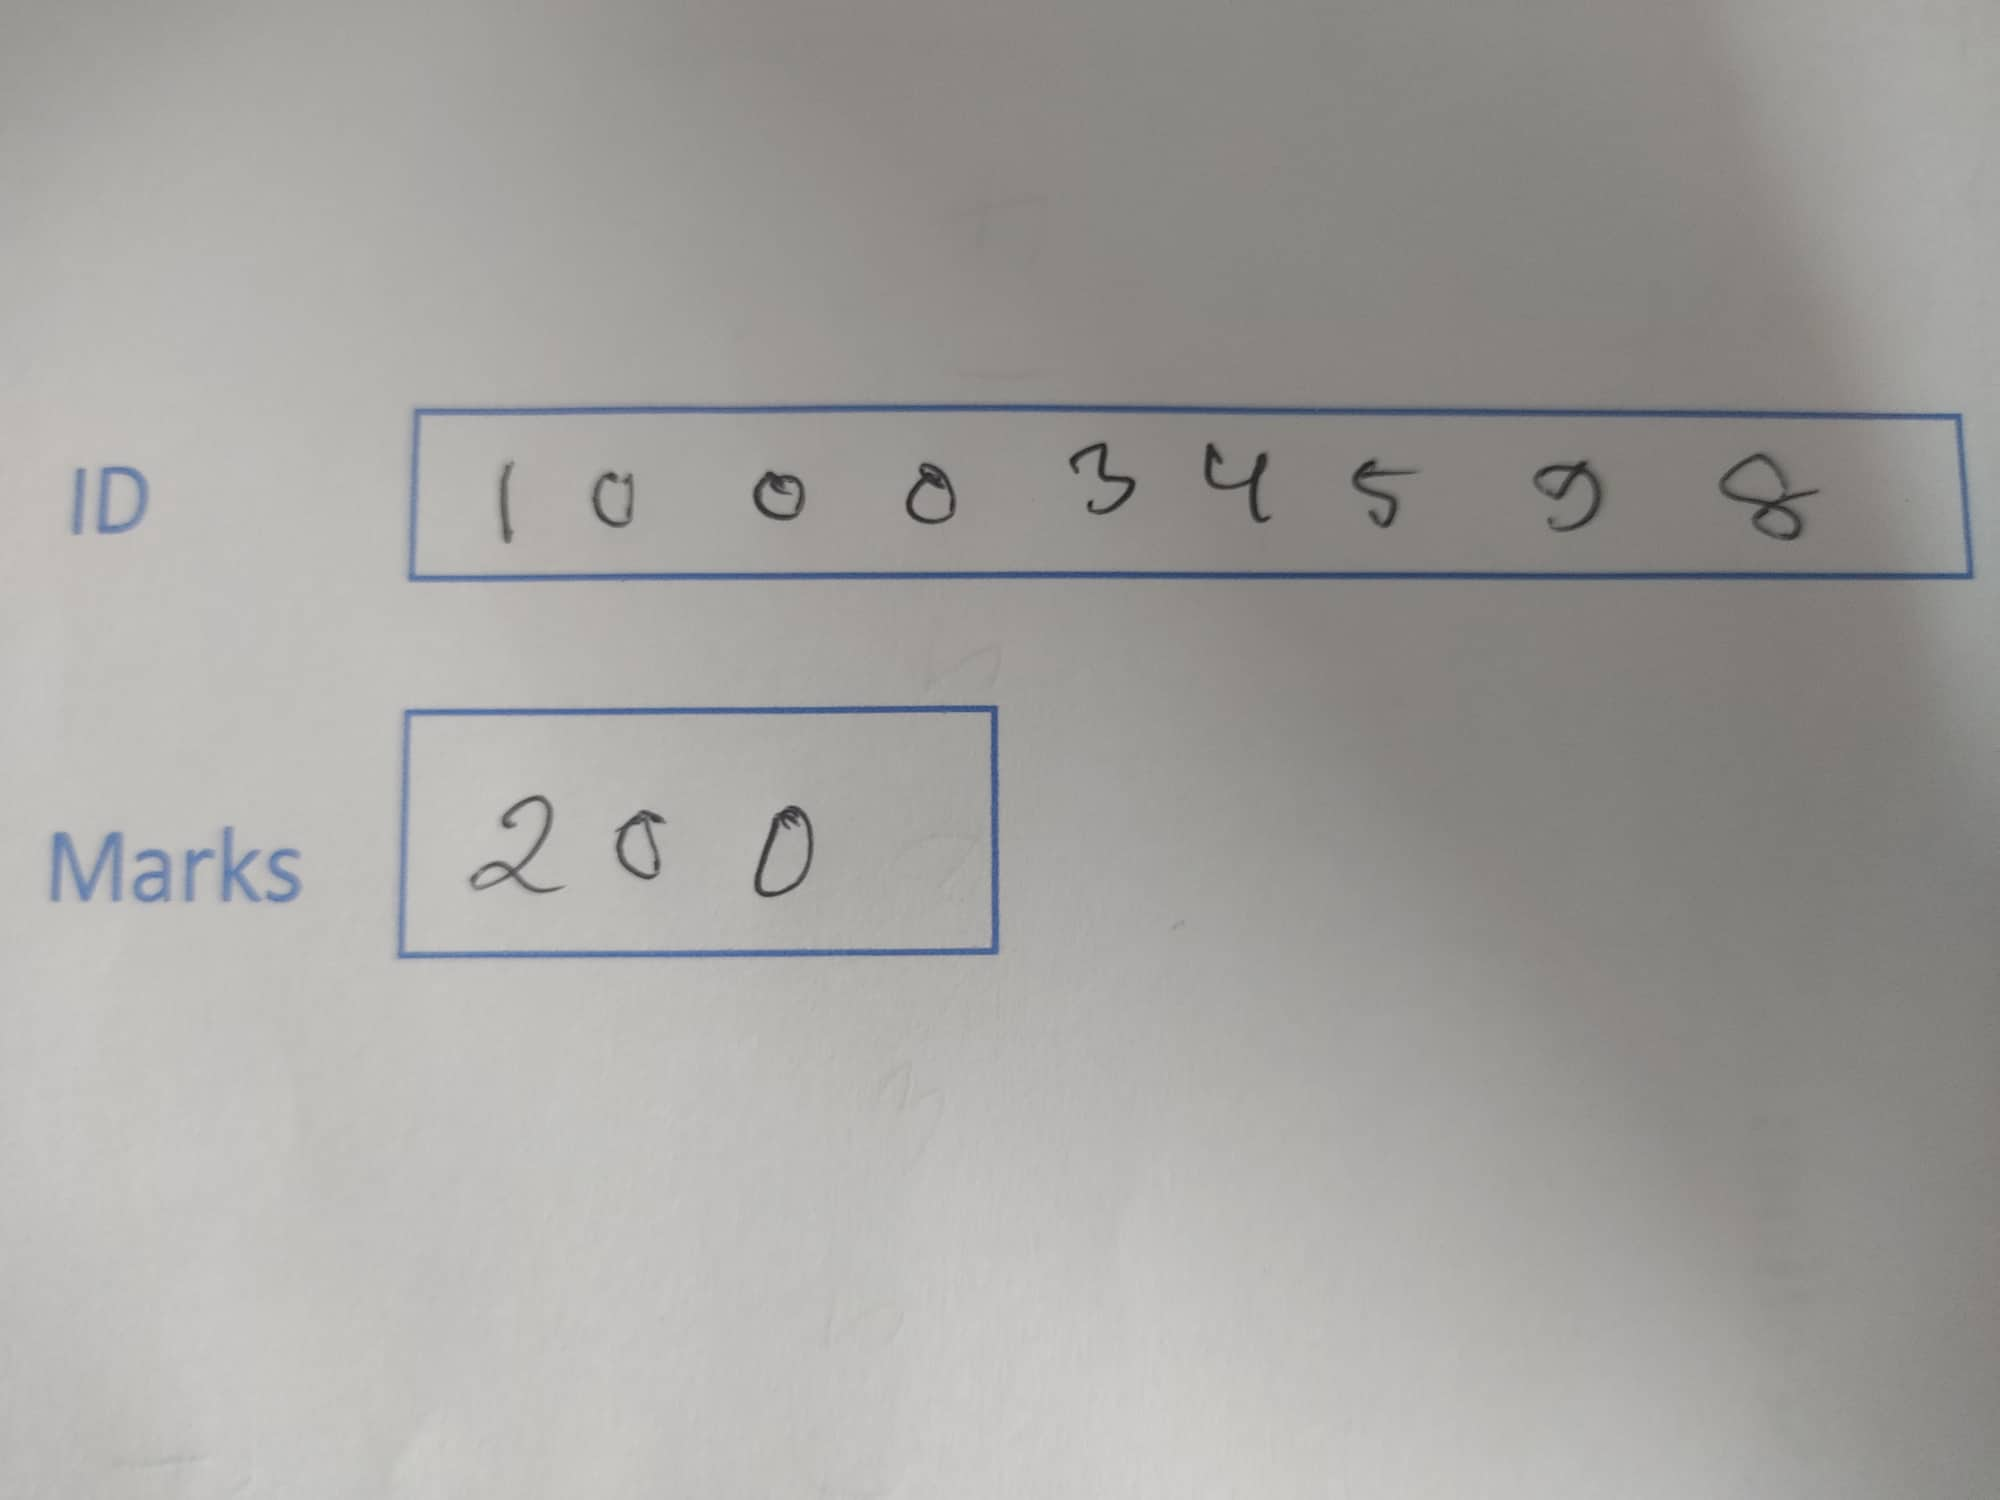 ID 1 0 0 0 3 4 5 9 8
Marks 2 0 0